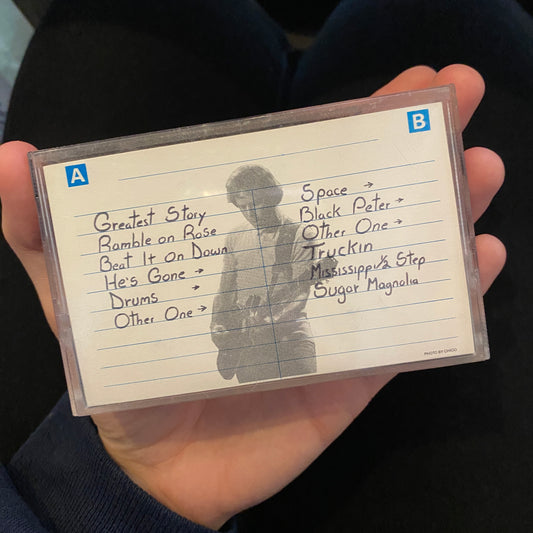 A
Greatest Story
Ramble on Rose
Beat It on Down
He's Gone →
Drums →
Other One →
B
Space →
Black Peter →
Other One →
Truckin
Mississippi 1/2 Step
Sugar Magnolia
PHOTO BY CHICO